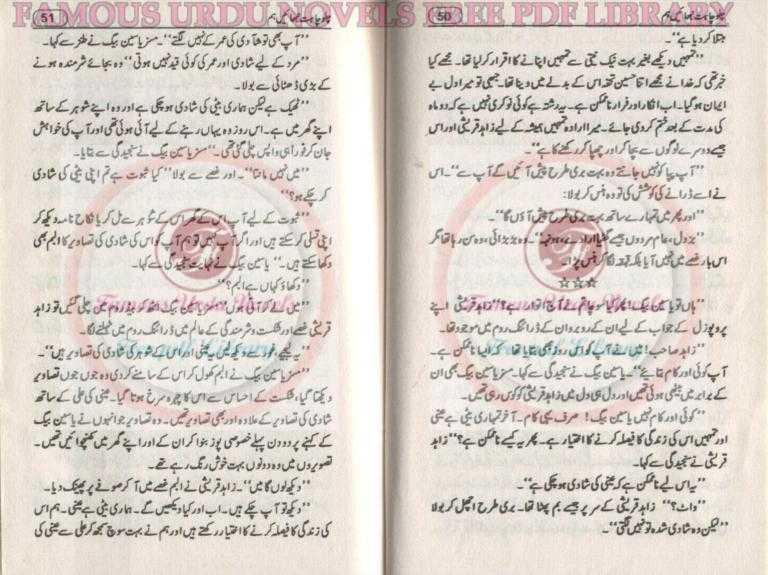 FAMOUS URDU NOVELS FREE PDF LIBRARY
50
چلو چاہت نبھائیں ہم
جتلا کر دیا ہے۔"
"تمہیں دیکھے بغیر بہت نیک نیتی سے تمہیں اپنانے کا اقرار کر لیا تھا۔ مجھے کیا
خبر تھی کہ خدا نے مجھے اتنا حسین تحفہ اس کے بدلے میں دینا تھا۔ جبھی تو میرا دل بے
ایمان ہو گیا۔ اب انکار اور فرار ناممکن ہے۔ یہ رشتہ ہے کوئی نوکری نہیں ہے کہ دو ماہ
کی مدت کے بعد ختم کر دی جائے۔ میرا ارادہ تمہیں ہمیشہ کے لیے زاہد قریشی اور اس
جیسے دوسرے لوگوں سے بچا کر اور چھپا کر رکھنے کا ہے۔"
"آپ پپا کو نہیں جانتے وہ بہت بری طرح پیش آئیں گے آپ سے۔" اس
نے اسے ڈرانے کی کوشش کی تو وہ ہنس کر بولا:
"اور پھر میں تمہارے ساتھ بہت بری طرح پیش آؤں گا۔"
"بزدل، عام مردوں جیسے گھٹیا ارادے، ہونہہ۔" وہ بڑبڑائی، وہ سن رہا تھا مگر
اس بار غصے میں نہیں آیا بلکہ قہقہہ لگا کر ہنس پڑا۔
☆☆☆
"ہاں تو یاسین بیگ! پھر کیا سوچا تم نے آج اتوار ہے۔" زاہد قریشی اپنے
پروپوزل کے جواب کے لیے ان کے روبرو ان کے ڈرائنگ روم میں موجود تھا۔
"زاہد صاحب! میں نے آپ کو اس روز بھی بتایا تھا۔ کہ ایسا ناممکن ہے۔
آپ کوئی اور کام بتائیے۔" یاسین بیگ نے سنجیدگی سے کہا۔ مسز یاسین بیگ بھی ان
کے برابر میں بیٹھی ہوئی تھیں اور دل ہی دل میں زاہد قریشی کو کوس رہی تھیں۔
"کوئی اور کام نہیں یاسین بیگ! صرف یہی کام۔ آخر تمہاری بیٹی ہے عینی
اور تمہیں اس کی زندگی کا فیصلہ کرنے کا اختیار ہے۔ پھر یہ کیسے ناممکن ہے؟" زاہد
قریشی نے سنجیدگی سے کہا۔
"یہ اس لیے ناممکن ہے کہ عینی کی شادی ہو چکی ہے۔"
"واٹ؟" زاہد قریشی کے سر پر جیسے بم پھٹا تھا۔ بری طرح اچھل کر بولا
"لیکن وہ شادی شدہ تو نہیں لگتی۔"
51
چلو چاہت نبھائیں ہم
"آپ بھی تو شادی کی عمر کے نہیں لگتے"۔ مسز یاسین بیگ نے طنز سے کہا۔
"مرد کے لیے شادی اور عمر کی کوئی قید نہیں ہوتی" وہ بجائے شرمندہ ہونے
کے بڑی ڈھٹائی سے بولا۔
"ٹھیک ہے لیکن ہماری بیٹی کی شادی ہو چکی ہے اور وہ اپنے شوہر کے ساتھ
اپنے گھر میں ہے۔ اس روز وہ یہاں رہنے کے لیے آئی ہوئی تھی اور آپ کی خواہش
جان کر فوراً ہی واپس چلی گئی تھی۔" مسز یاسین بیگ نے سنجیدگی سے بتایا۔
"میں نہیں مانتا"۔ اور غصے سے بولا "کیا ثبوت ہے تم اپنی بیٹی کی شادی
کر چکے ہو؟"
"ثبوت کے لیے آپ اس کے گھر اس کے شوہر سے مل کر یا نکاح نامہ دیکھ کر
اپنی تسلی کر سکتے ہیں اور اگر آپ نہیں تو ہم آپ کو اس کی شادی کی تصاویر کا البم بھی
دکھا سکتے ہیں۔" یاسین بیگ نے نہایت سنجیدگی سے کہا۔
"دکھاؤ کہاں ہے البم۔؟"
"میں لے کر آتی ہوں" مسز یاسین بیگ اٹھ کر بیڈ روم میں چلی گئیں تو زاہد
قریشی غصے اور شکست و شرمندگی کے عالم میں ڈرائنگ روم میں ٹہلنے لگا۔
"یہ لیجیے، خود ہی دیکھ لیں عینی اور اس کے شوہر کی شادی کی تصاویر ہیں"۔
مسز یاسین بیگ نے البم کھول کر اس کے سامنے کر دی وہ جوں جوں تصاویر
دیکھتا گیا، شکست کے احساس سے اس کا چہرہ سرخ ہوتا گیا۔ عینی کی علی کے ساتھ
شادی کی تصاویر کے علاوہ اور بھی تصاویر تھیں۔ وہ تصاویر جو انہوں نے یاسین بیگ
کے کہنے پر دو دن پہلے خصوصی پوز بنوا کر ان کے اور اپنے گھر میں کھنچوائیں تھیں۔
تصویروں میں وہ دونوں بہت خوش رنگ رہے تھے۔
"دیکھ لوں گا میں"۔ زاہد قریشی نے البم غصے میں آ کر صوفے پر پھینک دیا۔
"دیکھ تو آپ چکے ہیں۔ اب اور کیا دیکھیں گے۔ ہماری بیٹی ہے عینی۔ ہم اس
کی زندگی کا فیصلہ کرنے کا اختیار رکھتے ہیں اور ہم نے بہت سوچ سمجھ کر علی سے عینی کی